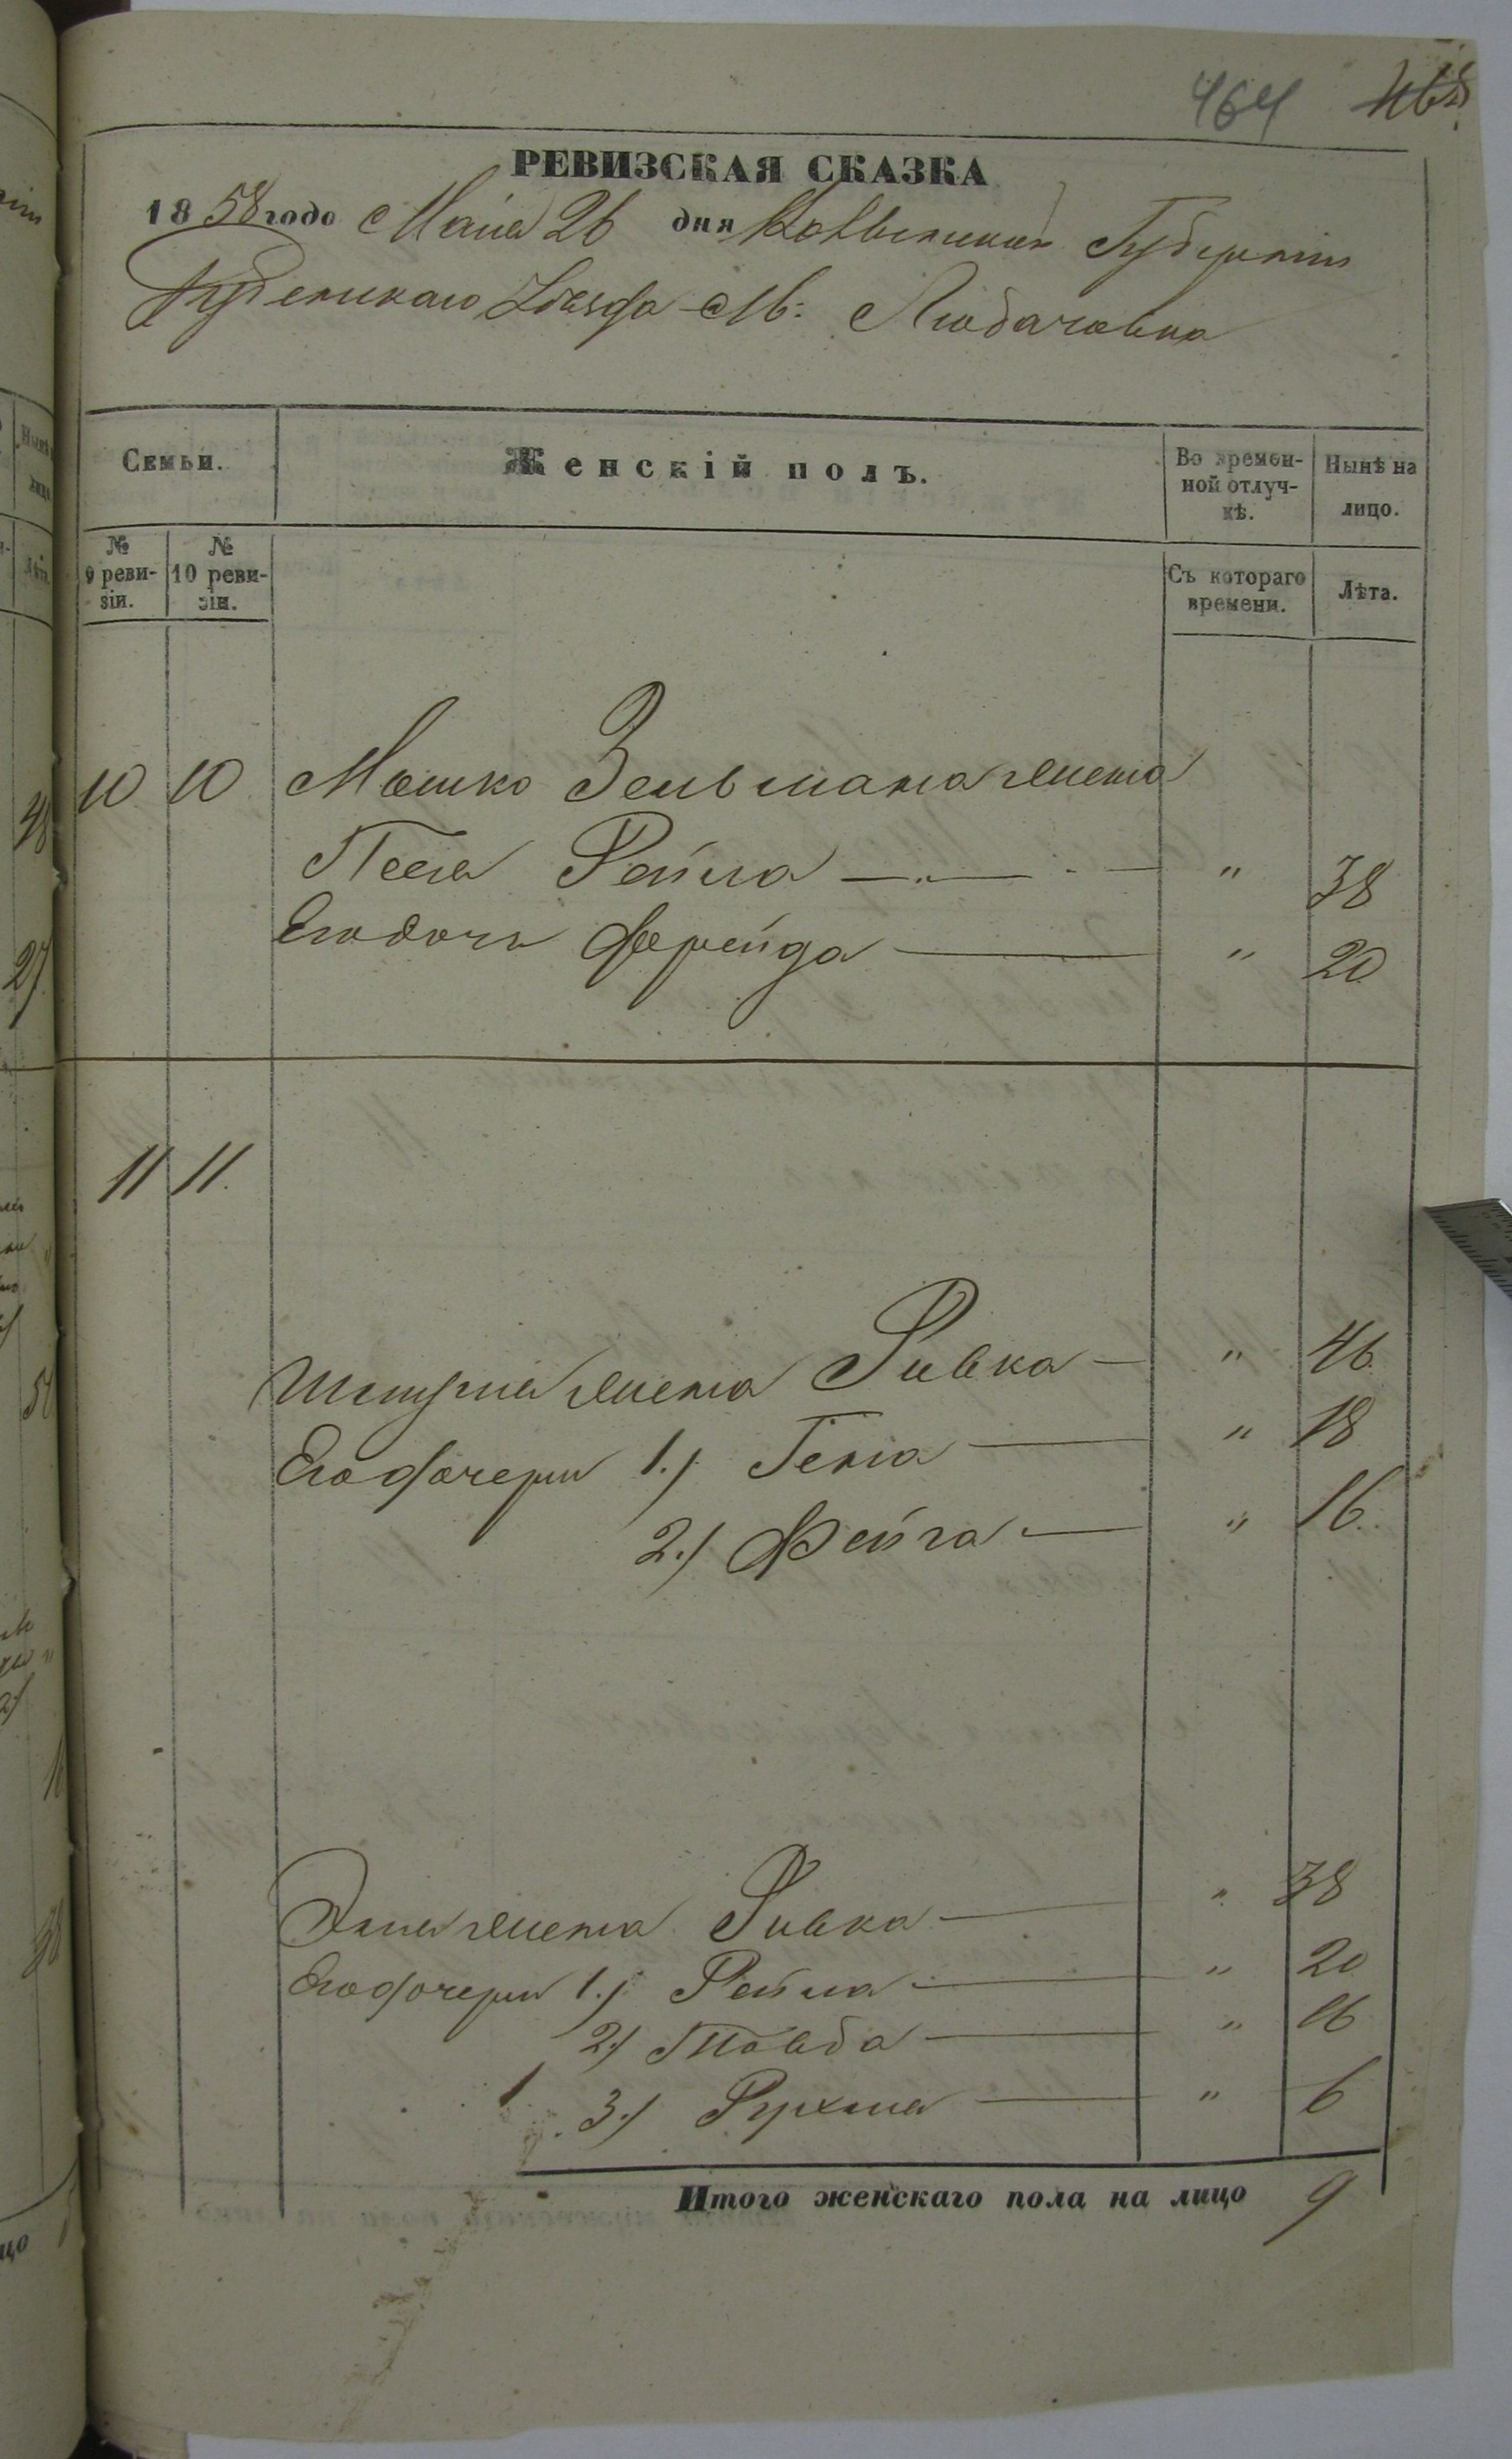 464 468
РЕВИЗСКАЯ СКАЗКА
1858 года Маія 26 дня Волынской Губерніи
Дубенскаго Уѣзда М: Любачовка
Семьи. Женскій полъ. Во времен-ной отлуч-кѣ. Нынѣ на лицо.
№ 9 реви-зіи. № 10 реви-зіи. Съ котораго времени. Лѣта.
10 10 Мошко Зельмана жена
Песя Рейла — " 38
Его дочь Фрейда — " 20
11 11.
жена Ривка — " 46
Его дочери 1.) Геня — " 18
2.) Фейга — " 16.
жена Ривка — " 38
Его дочери 1.) Рейла — " 20
2.) Товба — " 16
3.) Рухля — " 6
Итого женскаго пола на лицо 9